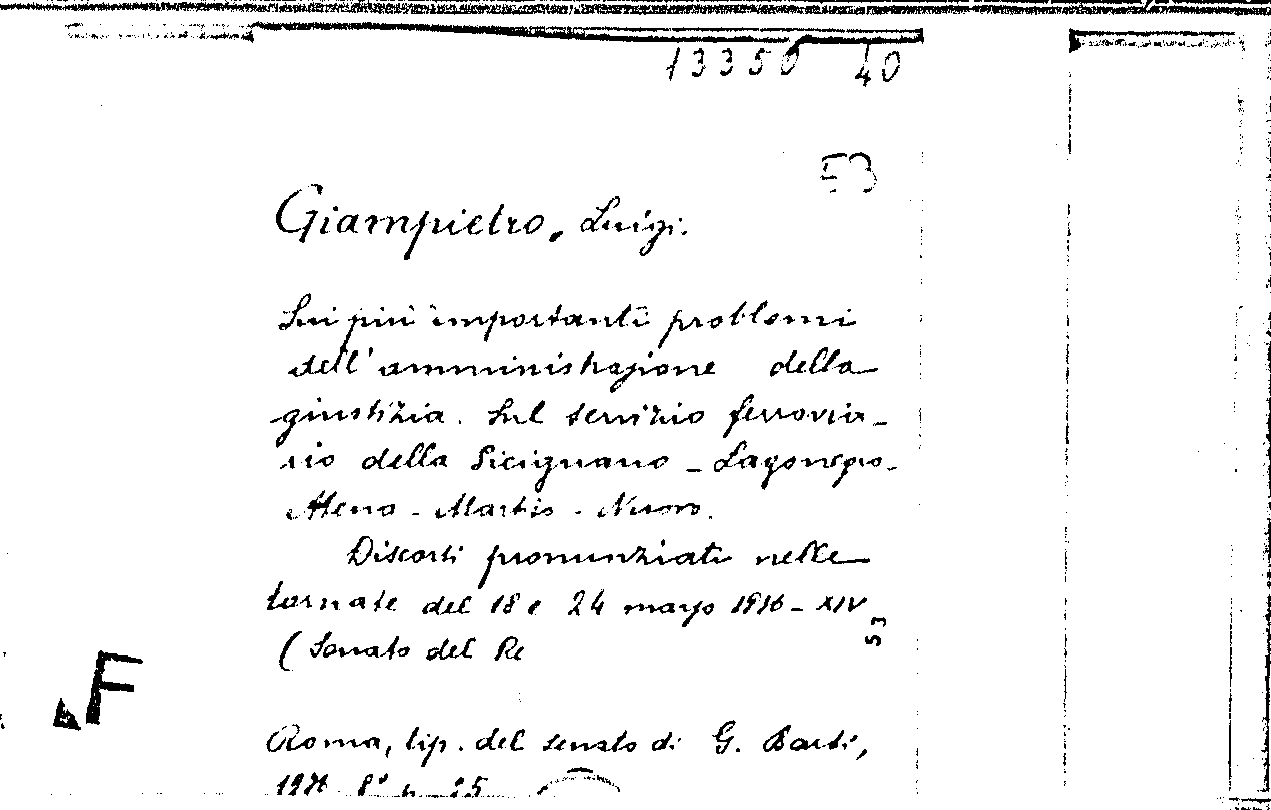 13350 40
53
Giampietro, Luigi.
Sui più importanti problemi
dell'amministrazione della
giustizia. Sul servizio ferrovia-
rio della Sicignano - Lagonegro-
Atena - Marsico - Nuovo.
Discorsi pronunziati nelle
tornate del 18 e 24 marzo 1936 - XIV
53
(Senato del Re
F
Roma, tip. del senato di G. Bardi,
1936 8° p. 25